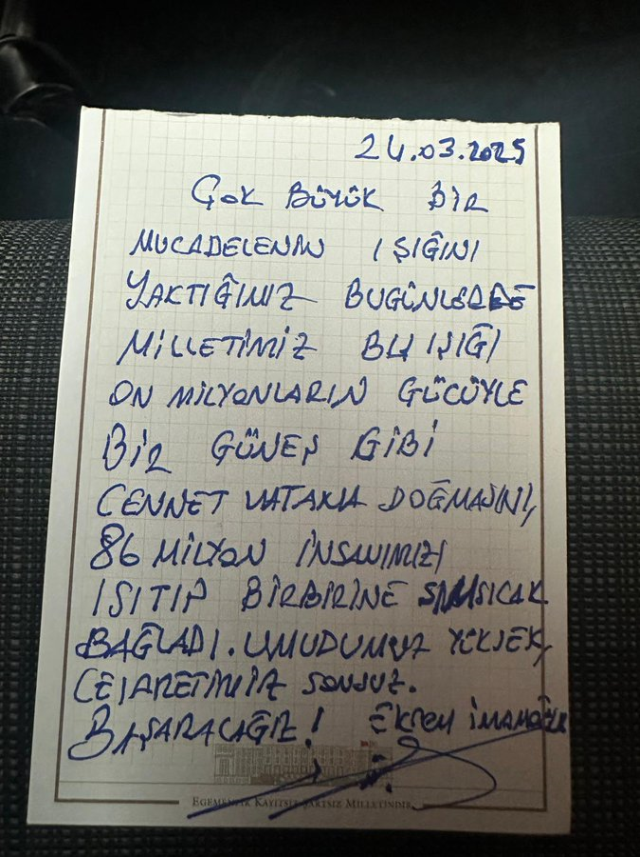 24.03.2025
ÇOK BÜYÜK BİR
MÜCADELENİN IŞIĞINI
YAKTIĞIMIZ BUGÜNLERDE
MİLLETİMİZ BU IŞIĞI
ON MİLYONLARIN GÜCÜYLE
BİR GÜNEŞ GİBİ
CENNET VATANA DOĞMASINI,
86 MİLYON İNSANIMIZI
ISITIP BİRBİRİNE SIMSICAK
BAĞLADI. UMUDUMUZ YÜKSEK,
CESARETİMİZ SONSUZ.
BAŞARACAĞIZ! EKREM İMAMOĞLU
EGEMENLİK KAYITSIZ ŞARTSIZ MİLLETİNDİR